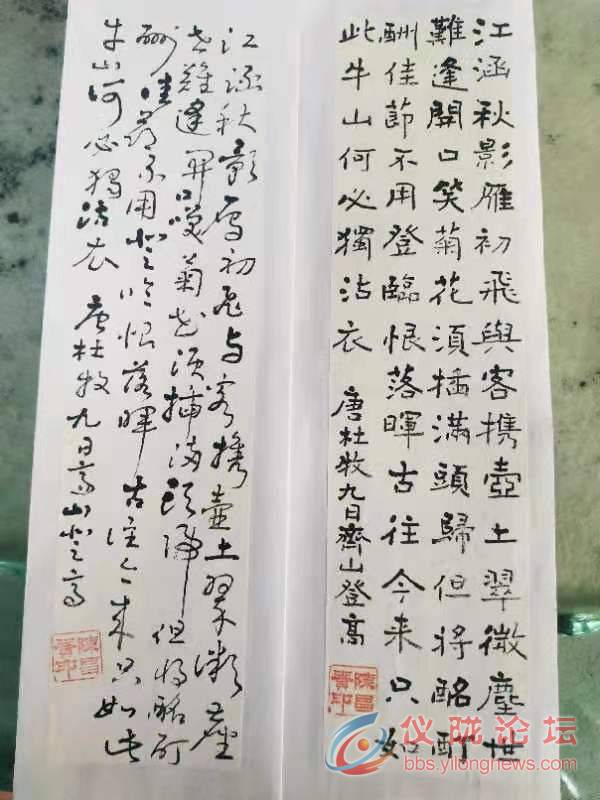 江涵秋影雁初飛與客携壺上翠微塵世
難逢開口笑菊花須插滿頭歸但将酩酊
酬佳節不用登臨恨落暉古往今来只如
此牛山何必獨沾衣 唐杜牧九日齊山登高
江涵秋影雁初飞与客携壶上翠微尘
世難逢开口笑菊花须插满头归但将酩酊
酬佳节不用登临恨落暉古往今来只如此
牛山何必獨沾衣 唐杜牧九日齐山登高
仪陇论坛
bbs.yilongnews.com